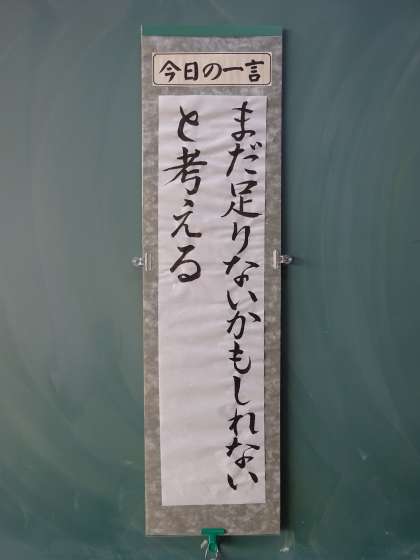 今日の一言
まだ足りないかもしれない
と考える